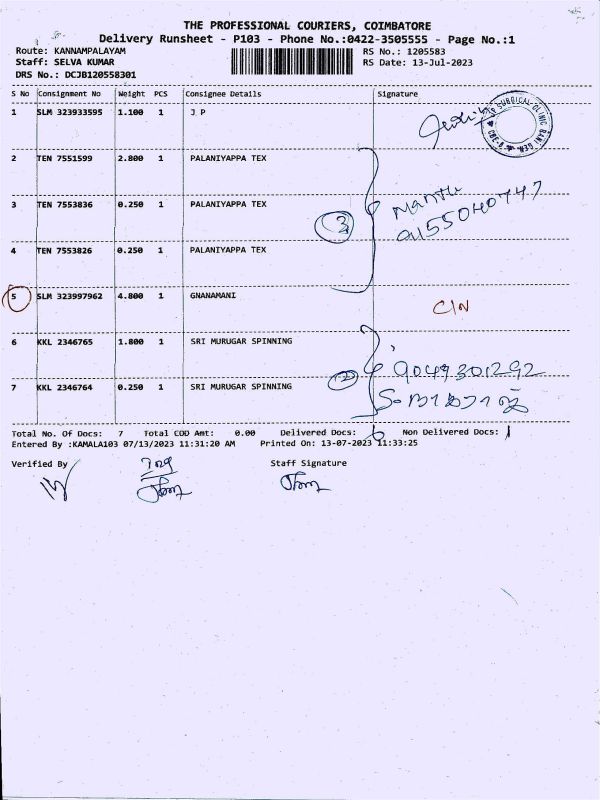 THE PROFESSIONAL COURIERS, COIMBATORE
Delivery Runsheet - P103 - Phone No.:0422-3505555 - Page No.:1
Route: KANNAMPALAYAM RS No.: 1205583
Staff: SELVA KUMAR RS Date: 13-Jul-2023
DRS No.: DCJB120558301
S No Consignment No Weight PCS Consignee Details Signature
1 SLM 323933595 1.100 1 J P
SURGICAL CLINIC
2 TEN 7551599 2.800 1 PALANIYAPPA TEX
3 TEN 7553836 0.250 1 PALANIYAPPA TEX
3
4 TEN 7553826 0.250 1 PALANIYAPPA TEX
5 SLM 323997962 4.800 1 GNANAMANI
C/N
6 KKL 2346765 1.800 1 SRI MURUGAR SPINNING
9049301292
7 KKL 2346764 0.250 1 SRI MURUGAR SPINNING
Total No. Of Docs: 7 Total COD Amt: 0.00 Delivered Docs: 6 Non Delivered Docs: 1
Entered By :KAMALA103 07/13/2023 11:31:20 AM Printed On: 13-07-2023 11:33:25
Verified By Staff Signature